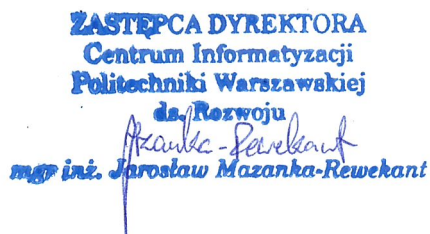 ZASTĘPCA DYREKTORA
Centrum Informatyzacji
Politechniki Warszawskiej
ds. Rozwoju
Mazanka-Rewekant
mgr inż. Jarosław Mazanka-Rewekant